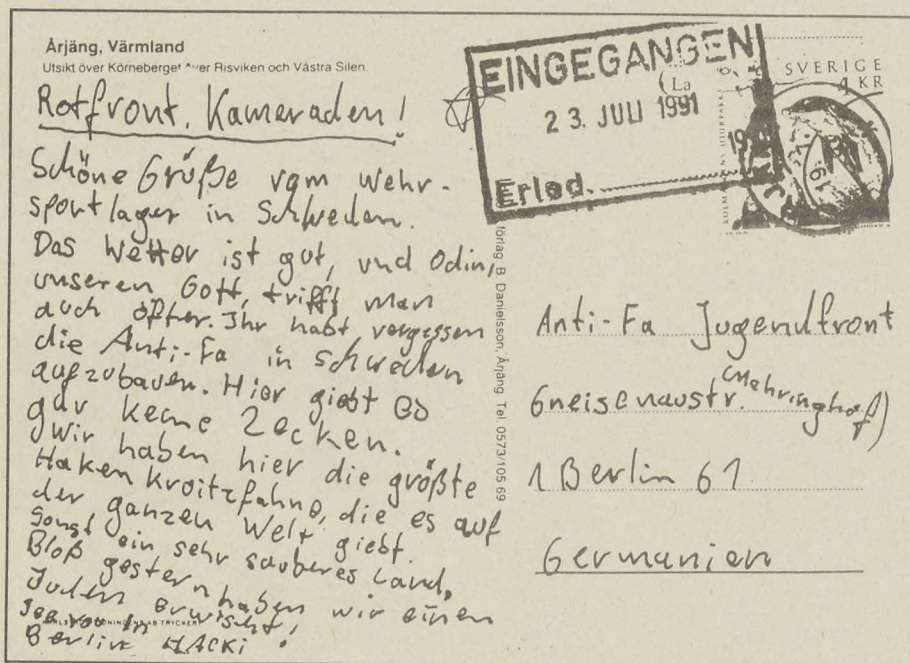 Årjäng, Värmland
Utsikt över Körneberget över Risviken och Västra Silen.
Rotfront, Kameraden!
Schöne Grüße vom Wehr-
sportlager in Schweden.
Das Wetter ist gut, und Odin,
unseren Gott, trifft man
auch öfter. Ihr habt vergessen
die Anti-Fa in Schweden
aufzubauen. Hier giebt es
gar keine Zecken.
Wir haben hier die größte
Hakenkroitzfahne, die es auf
der ganzen Welt giebt.
Sonst ein sehr sauberes Land,
Bloß gestern haben wir einen
Juden erwischt!
See you in
Berlin HACKi!
förlag B. Danielsson, Årjäng. Tel. 0573/105 69
EINGEGANGEN
23. JULI 1991
Erled.
SVERIGE
4 KR
Anti-Fa Jugendfront
Gneisenaustr. (Mehringhof)
1 Berlin 61
Germanien